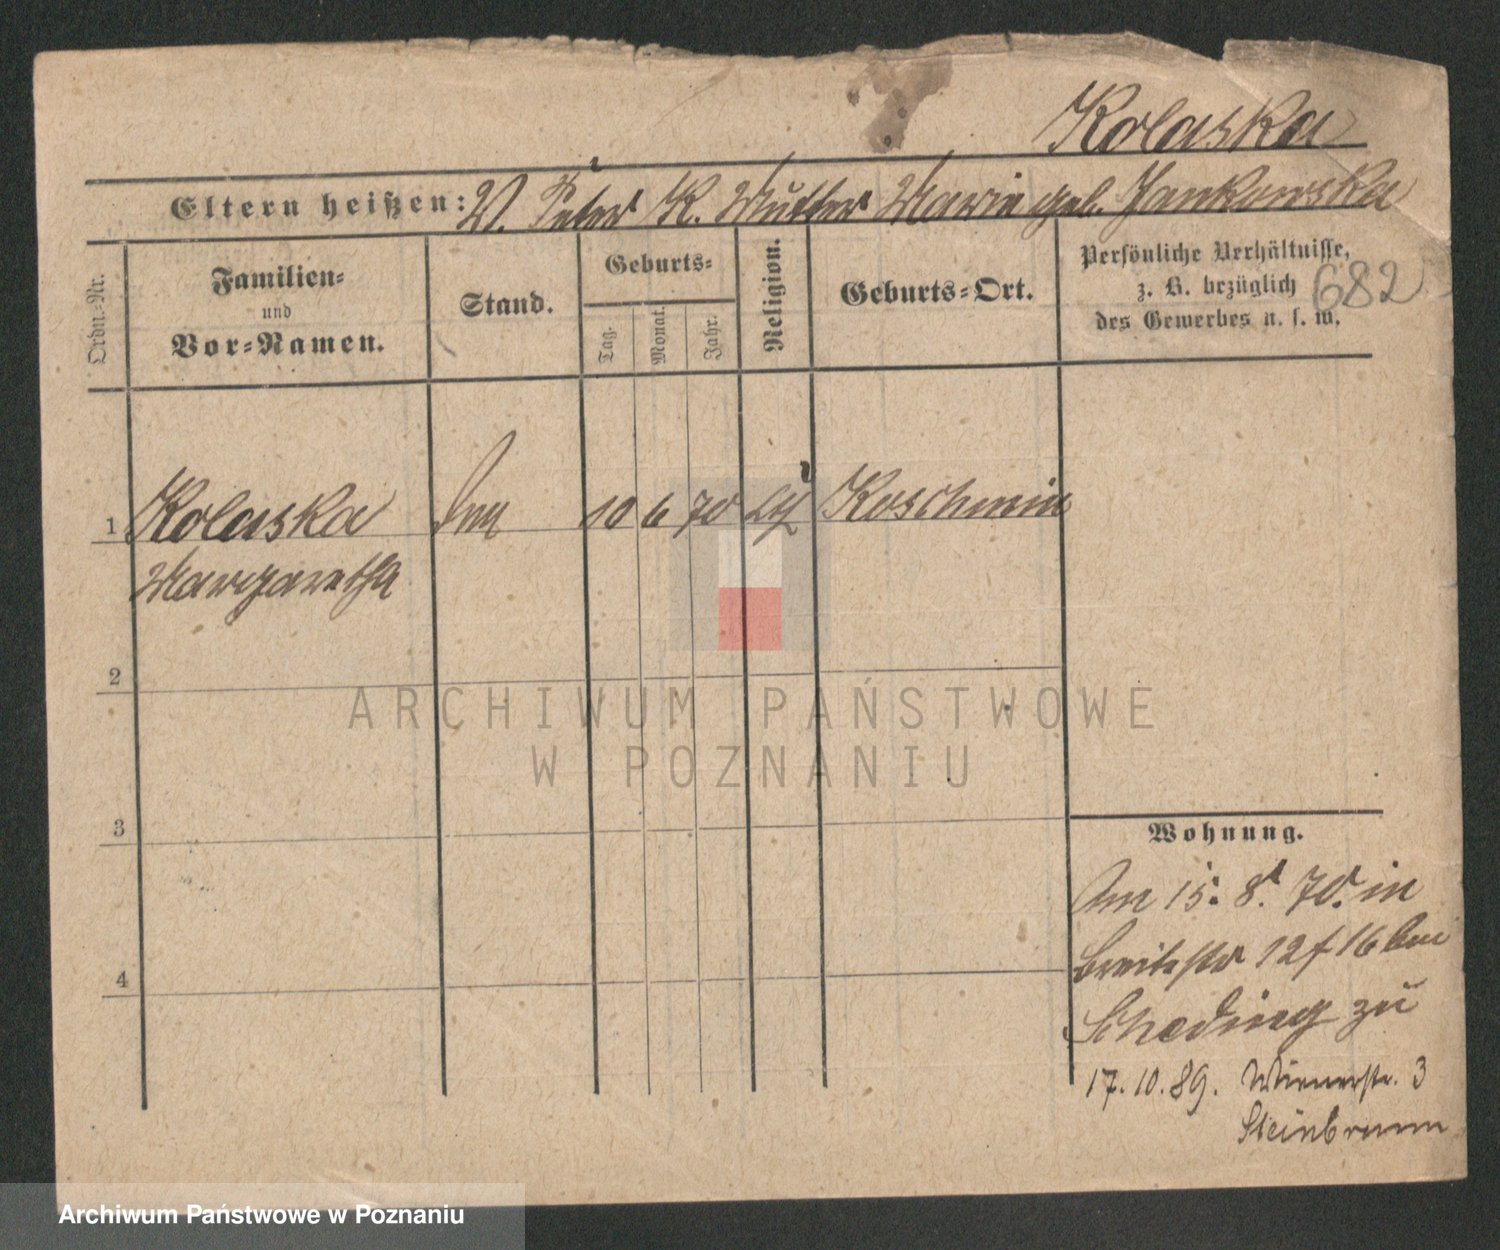 Kolaska
Eltern heißen: V. Peter K. Mutter Marie geb. Jankowska
Ordn.-Nr.
Familien-
und
Vor-Namen.
Stand.
Geburts-
Tag.
Monat.
Jahr.
Religion.
Geburts-Ort.
Persönliche Verhältnisse,
z. B. bezüglich
des Gewerbes u. s. w.
682
1 Kolaska 10 6 70 Koschmin
Margaretha
2
3
4
ARCHIWUM PAŃSTWOWE
W POZNANIU
Wohnung.
Am 15. 8. in
Breitestr 12 16 bei
zu
17. 10. 89. Wienerstr. 3
Steinbrunn
Archiwum Państwowe w Poznaniu